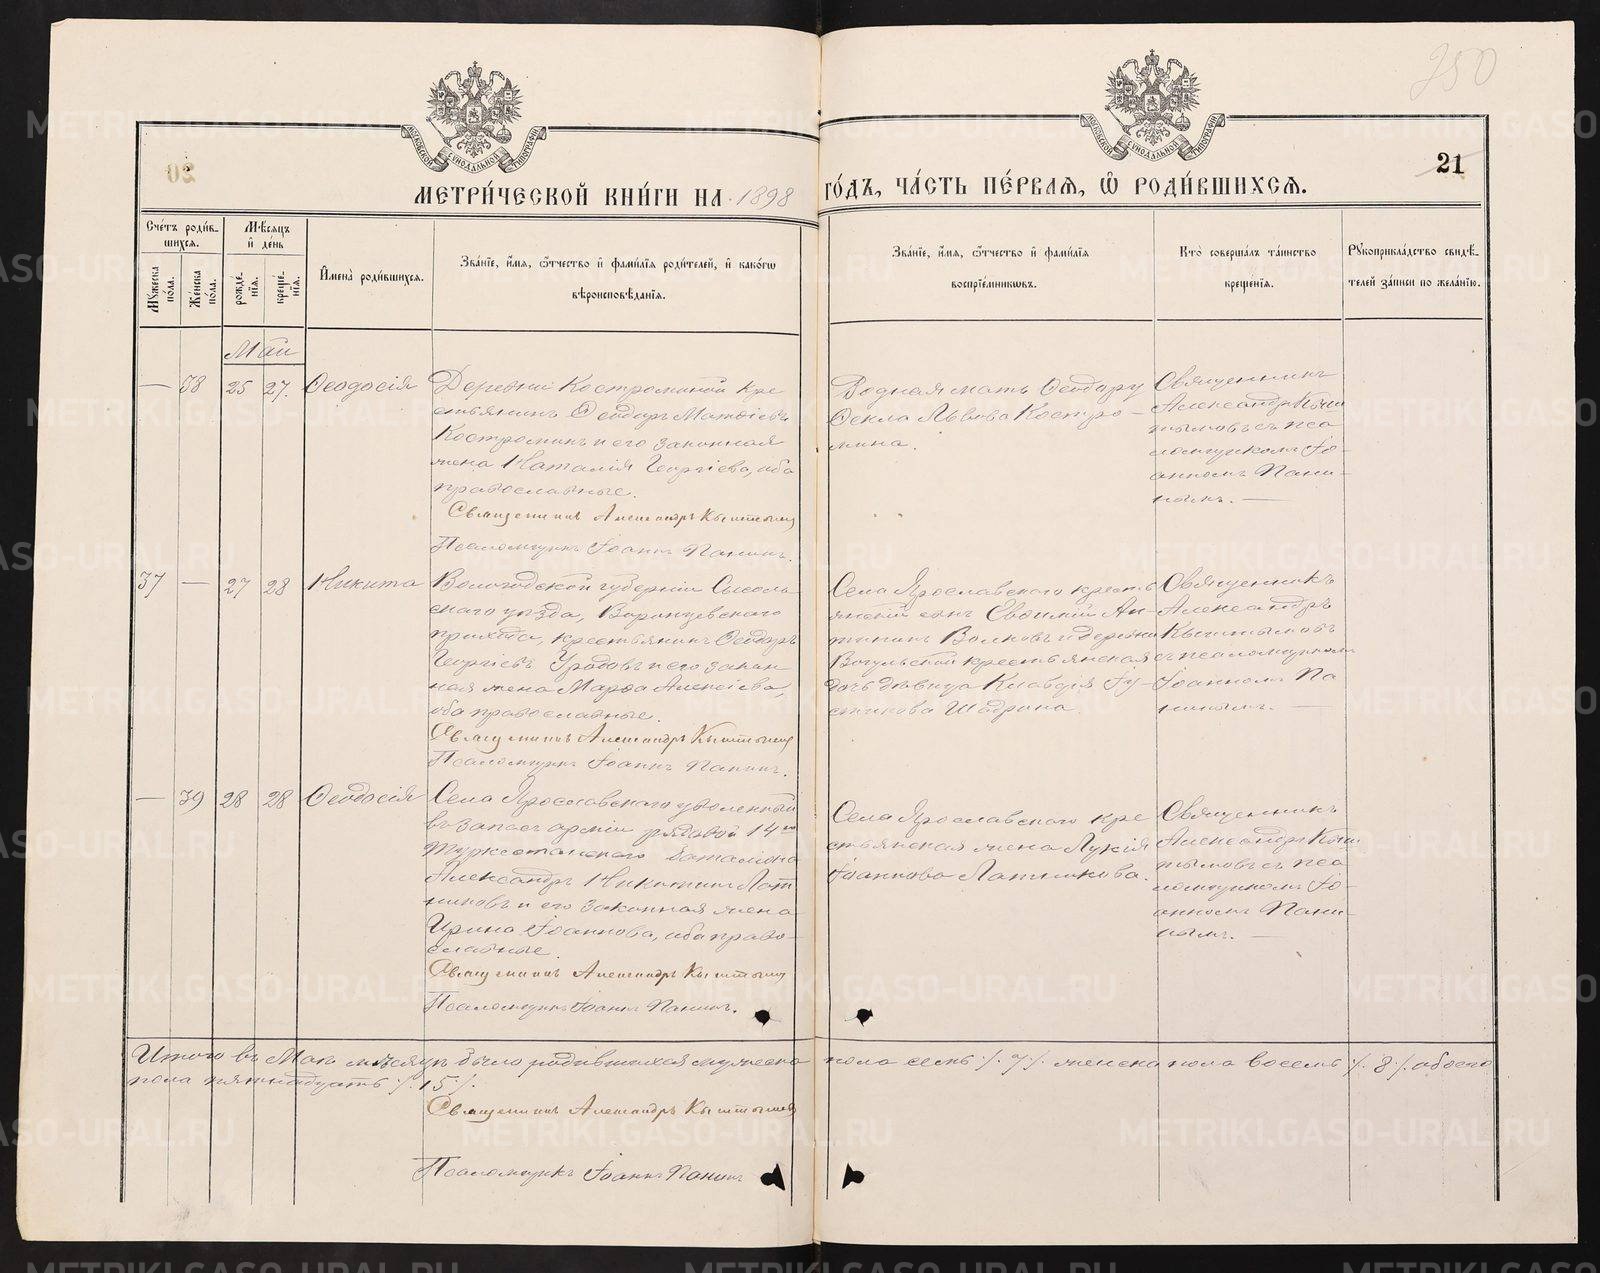 250
21
20
МОСКОВСКОЙ СѴНОДАЛЬНОЙ ТИПОГРАФІИ
МОСКОВСКОЙ СѴНОДАЛЬНОЙ ТИПОГРАФІИ
МЕТРИ́ЧЕСКОЙ КНИ́ГИ НА 1898 ГО́ДЪ, ЧА́СТЬ ПЕ́РВАѦ, Ѽ РОДИ́ВШИХСѦ.
Сче́тъ роди́в-
шихся.
Мѣ́сяцъ
и҆ де́нь
Мꙋ́жеска по́ла.
Же́нска по́ла.
рожде́нїя.
креще́нїя.
И҆мена̀ роди́вшихся.
Зва́нїе, и҆́мя, ѻ҆́тчество и҆ фами́лїя роди́телей, и҆ како́гѡ
вѣроисповѣ́данїя.
Зва́нїе, и҆́мя, ѻ҆́тчество и҆ фами́лїя
воспрїе́мникѡвъ.
Кто̀ соверша́лъ та́инство
креще́нїя.
Рꙋкоприкла́дство свидѣ́-
телей за́писи по жела́нїю.
Май
— 38 25 27. Ѳеодосія
Деревни Костроминой кре
стьянинъ Ѳеодоръ Матѳіевъ
Костроминъ и его законная
жена Наталія Георгіева, оба
православные.
Священникъ Александръ Кыштымовъ
Псаломщикъ Іоаннъ Панинъ.
Родная мать Ѳеодору
Ѳекла Львова Костро-
мина.
Священникъ
Александръ Кыш
тымовъ съ пса
ломщикомъ Іо-
анномъ Пани-
нымъ. —
37 — 27 28 Никита
Вологодской губерніи Сысоль-
скаго уѣзда, Воронцевскаго
прихода, крестьянинъ Ѳеодоръ
Георгіевъ Уродовъ и его закон-
ная жена Марѳа Алексіева,
оба православные.
Священникъ Александръ Кыштымовъ
Псаломщикъ Іоаннъ Панинъ.
Села Ярославскаго кресть
янскій сынъ Евѳимій Ан-
типинъ Волковъ и деревни
Вогульской крестьянская
дочь дѣвица Клавдія Іу-
стинова Шадрина.
Священникъ
Александръ
Кыштымовъ
съ псаломщикомъ
Іоанномъ Па
нинымъ. —
— 39 28 28 Ѳеодосія
Села Ярославскаго уволенный
въ запасъ арміи рядовой 14го
Туркестанскаго баталіона
Александръ Никитинъ Лат
никовъ и его законная жена
Ирина Іоаннова, оба право-
славные.
Священникъ Александръ Кыштымовъ
Псаломщикъ Іоаннъ Панинъ.
Села Ярославскаго кре
стьянская жена Лукія
Іоаннова Латникова.
Священникъ
Александръ Кыш
тымовъ съ пса
ломщикомъ Іо-
анномъ Пани-
нымъ. —
Итого въ Маѣ мѣсяцѣ было родившихся мужеска пола семь ./. 7 ./. женска пола восемь ./. 8 ./. обоего
пола пятнадцать ./. 15 ./.
Священникъ Александръ Кыштымовъ
Псаломщикъ Іоаннъ Панинъ
METRIKI.GASO-URAL.RU